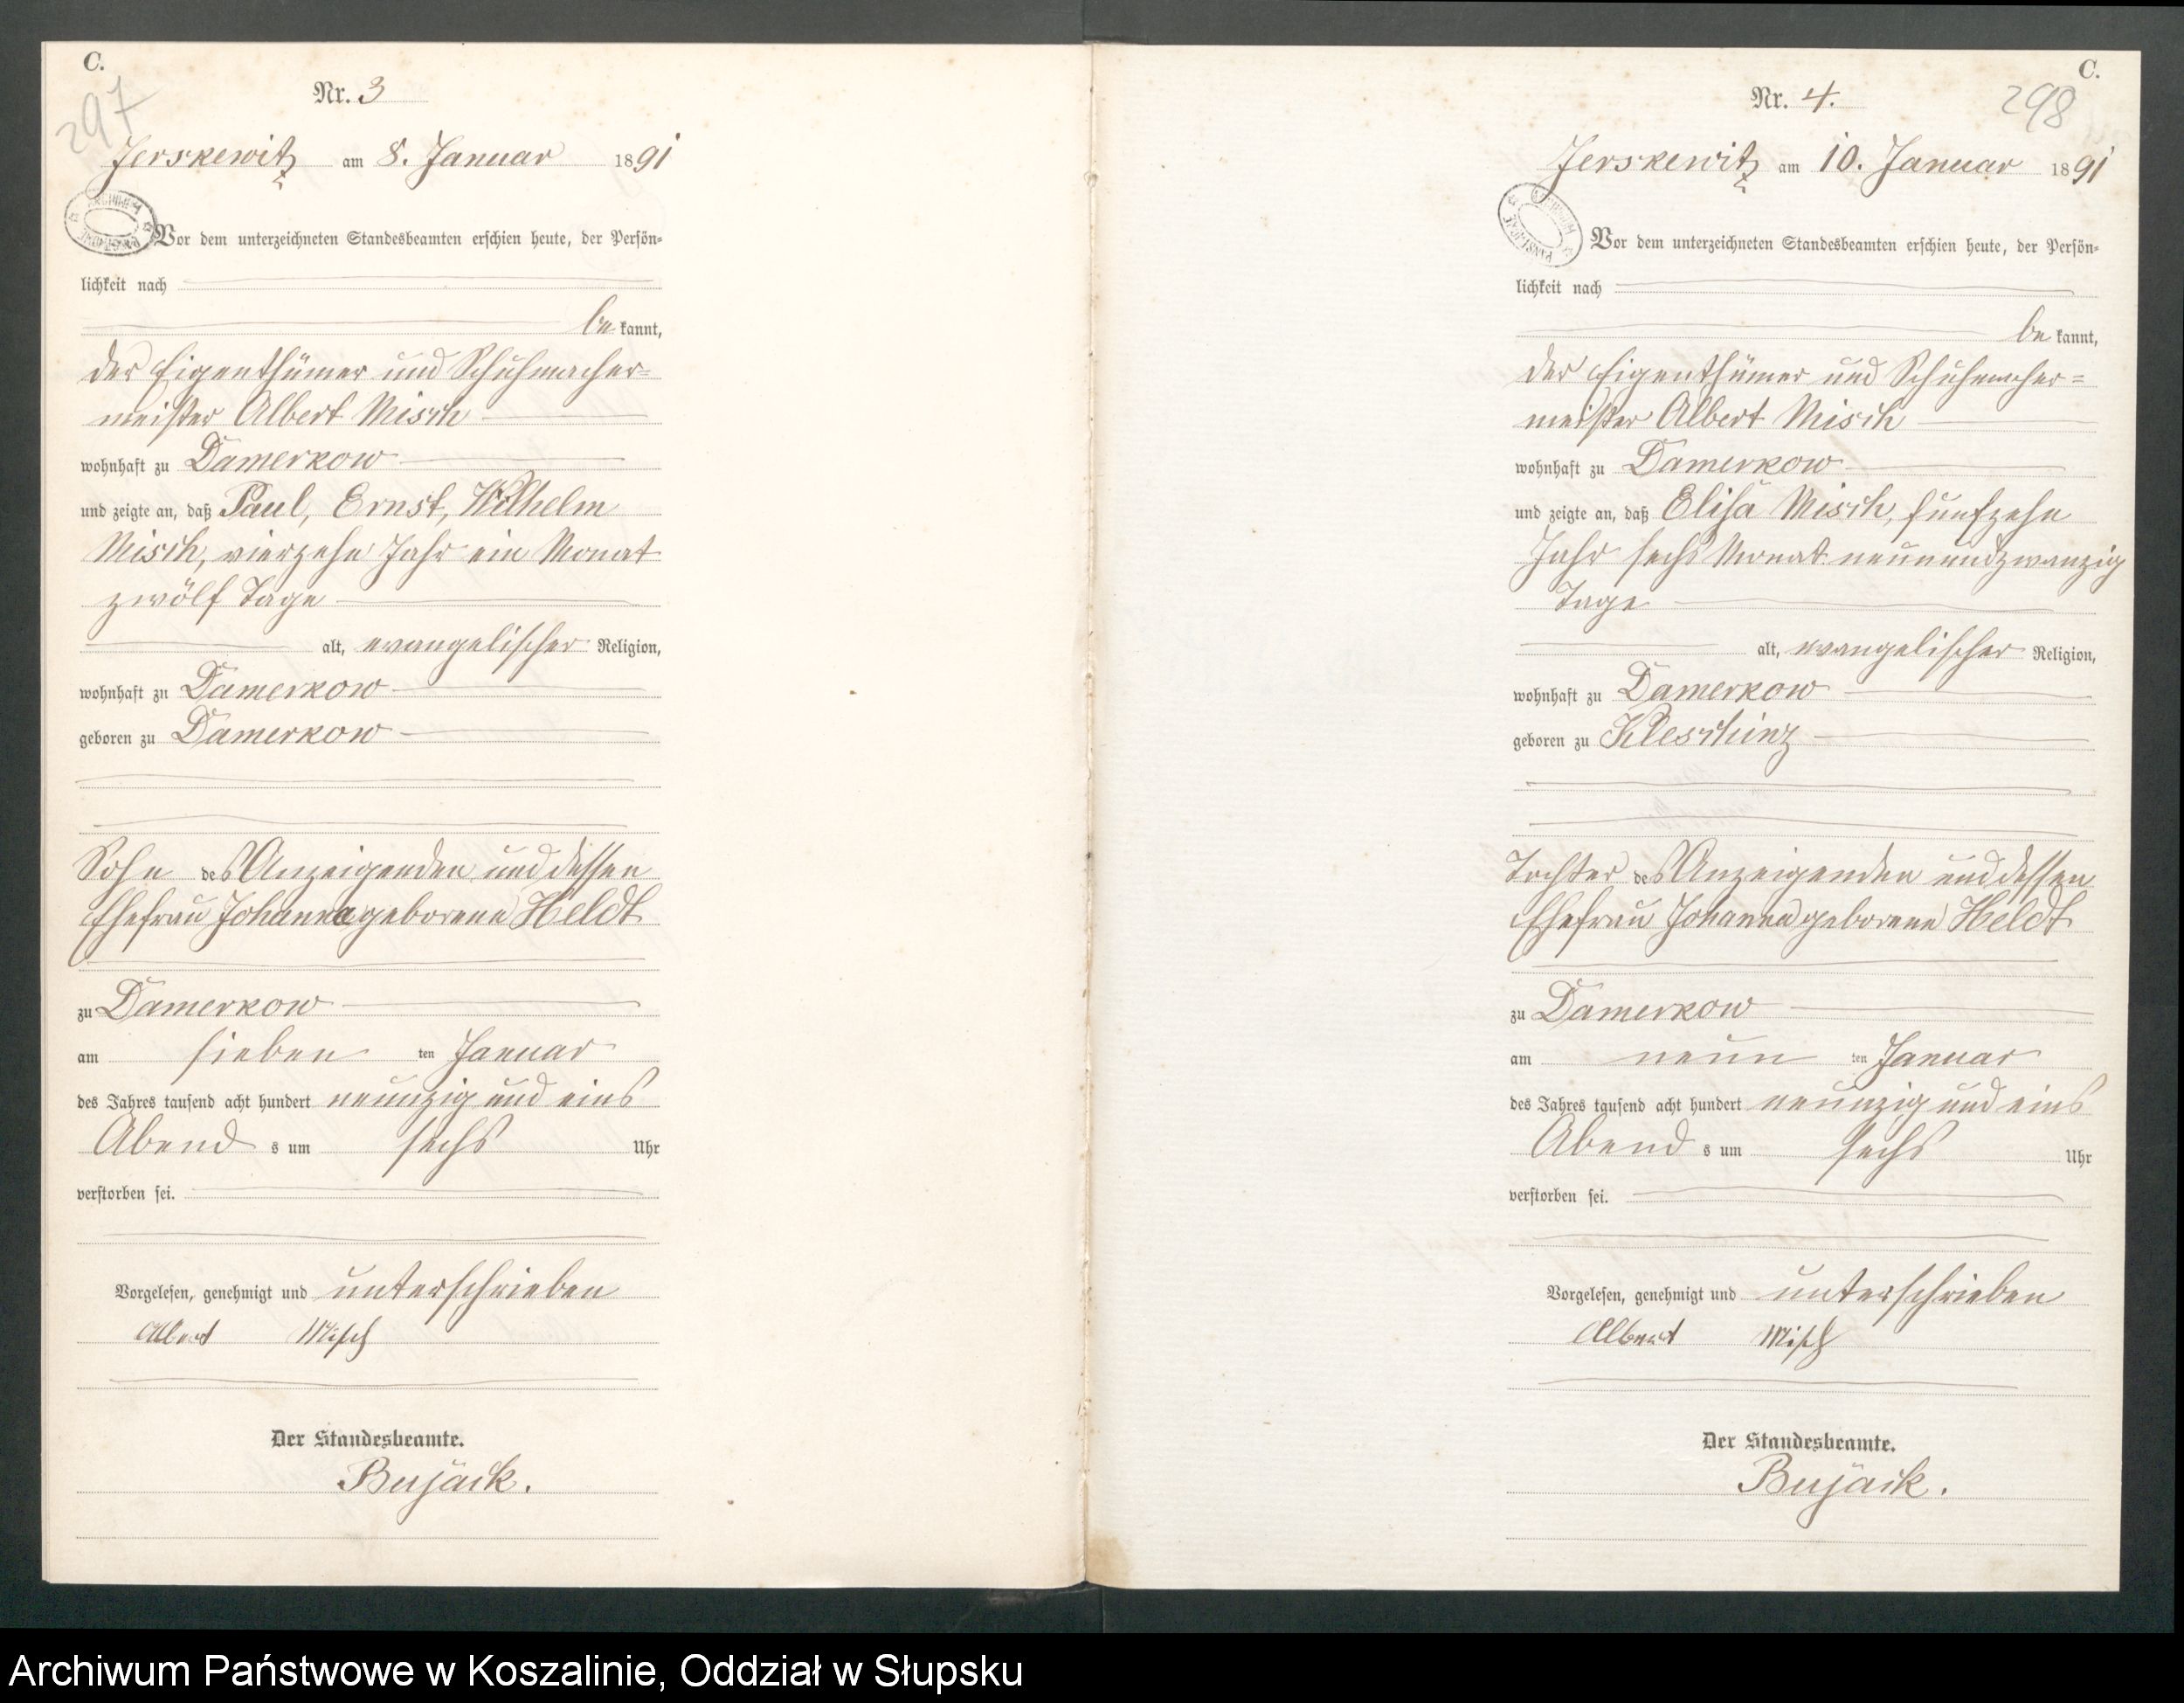 C.
297
Nr. 3
Jerskewitz am 8. Januar 1891
Vor dem unterzeichneten Standesbeamten erschien heute, der Persön-
lichkeit nach
be kannt,
der Eigenthümer und Schuhmacher-
meister Albert Misch
wohnhaft zu Damerkow
und zeigte an, daß Paul, Ernst, Wilhelm
Misch, vierzehn Jahr ein Monat
zwölf Tage
alt, evangelischer Religion,
wohnhaft zu Damerkow
geboren zu Damerkow
Sohn des Anzeigenden und dessen
Ehefrau Johanna geborene Heldt
zu Damerkow
am sieben ten Januar
des Jahres tausend acht hundert neunzig und eins
Abend s um sechs Uhr
verstorben sei.
Vorgelesen, genehmigt und unterschrieben
Albert Misch
Der Standesbeamte.
Bujack.
C.
298
Nr. 4.
Jerskewitz am 10. Januar 1891
Vor dem unterzeichneten Standesbeamten erschien heute, der Persön-
lichkeit nach
be kannt,
der Eigenthümer und Schuhmacher-
meister Albert Misch
wohnhaft zu Damerkow
und zeigte an, daß Elisa Misch, fünfzehn
Jahr sechs Monat neunundzwanzig
Tage
alt, evangelischer Religion,
wohnhaft zu Damerkow
geboren zu Kleschinz
Tochter des Anzeigenden und dessen
Ehefrau Johanna geborene Heldt
zu Damerkow
am neun ten Januar
des Jahres tausend acht hundert neunzig und eins
Abend s um sechs Uhr
verstorben sei.
Vorgelesen, genehmigt und unterschrieben
Albert Misch
Der Standesbeamte.
Bujack.
Archiwum Państwowe w Koszalinie, Oddział w Słupsku